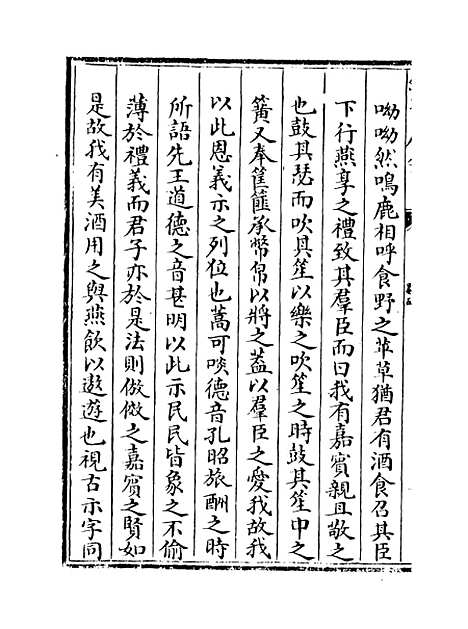 呦呦然鳴鹿相呼食野之苹草猶君有酒食召其臣
下行燕享之禮致其羣臣而曰我有嘉賓親且敬之
也鼓其瑟而吹其笙以樂之吹笙之時鼓其笙中之
簧又奉筐篚承幣帛以將之蓋以羣臣之愛我故我
以此恩義示之列位也蒿可啖德音孔昭旅酬之時
所語先王道德之音甚明以此示民民皆象之不偷
薄於禮義而君子亦於是法則倣傚之嘉賓之賢如
是故我有美酒用之與燕飲以遨遊也視古示字同